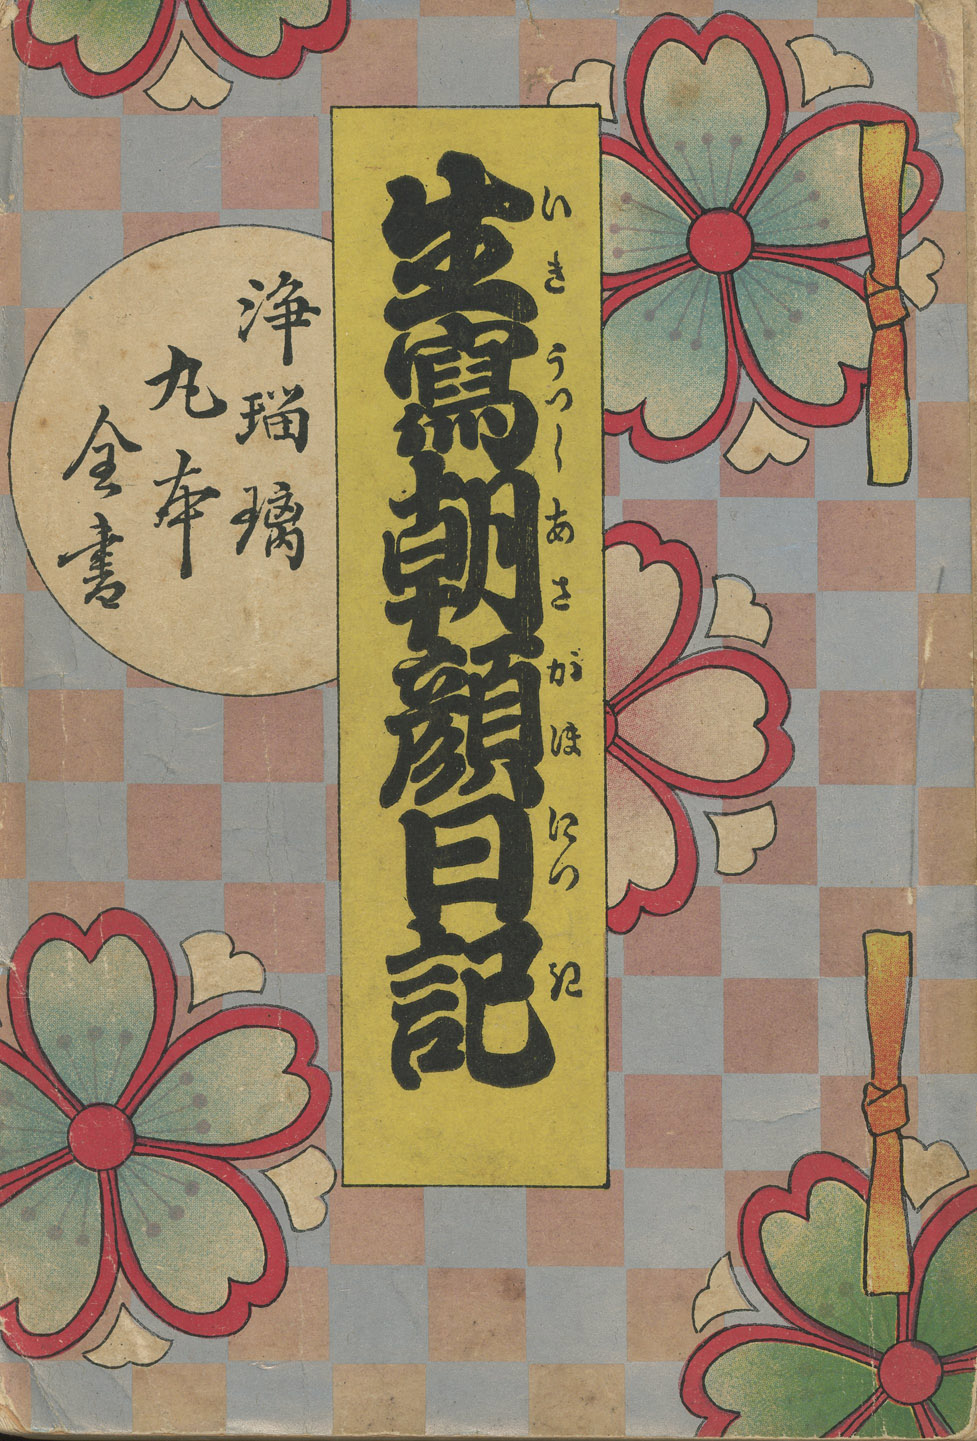 生寫朝顔日記
いきうつしあさがほにつき
浄瑠璃
丸本
全書